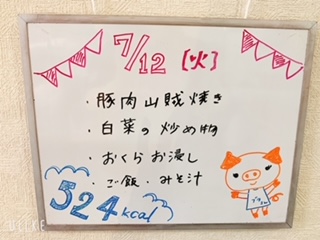 7/12 [火]
・豚肉山賊焼き
・白菜の炒め物
・おくらお浸し
・ご飯・みそ汁
524kcal